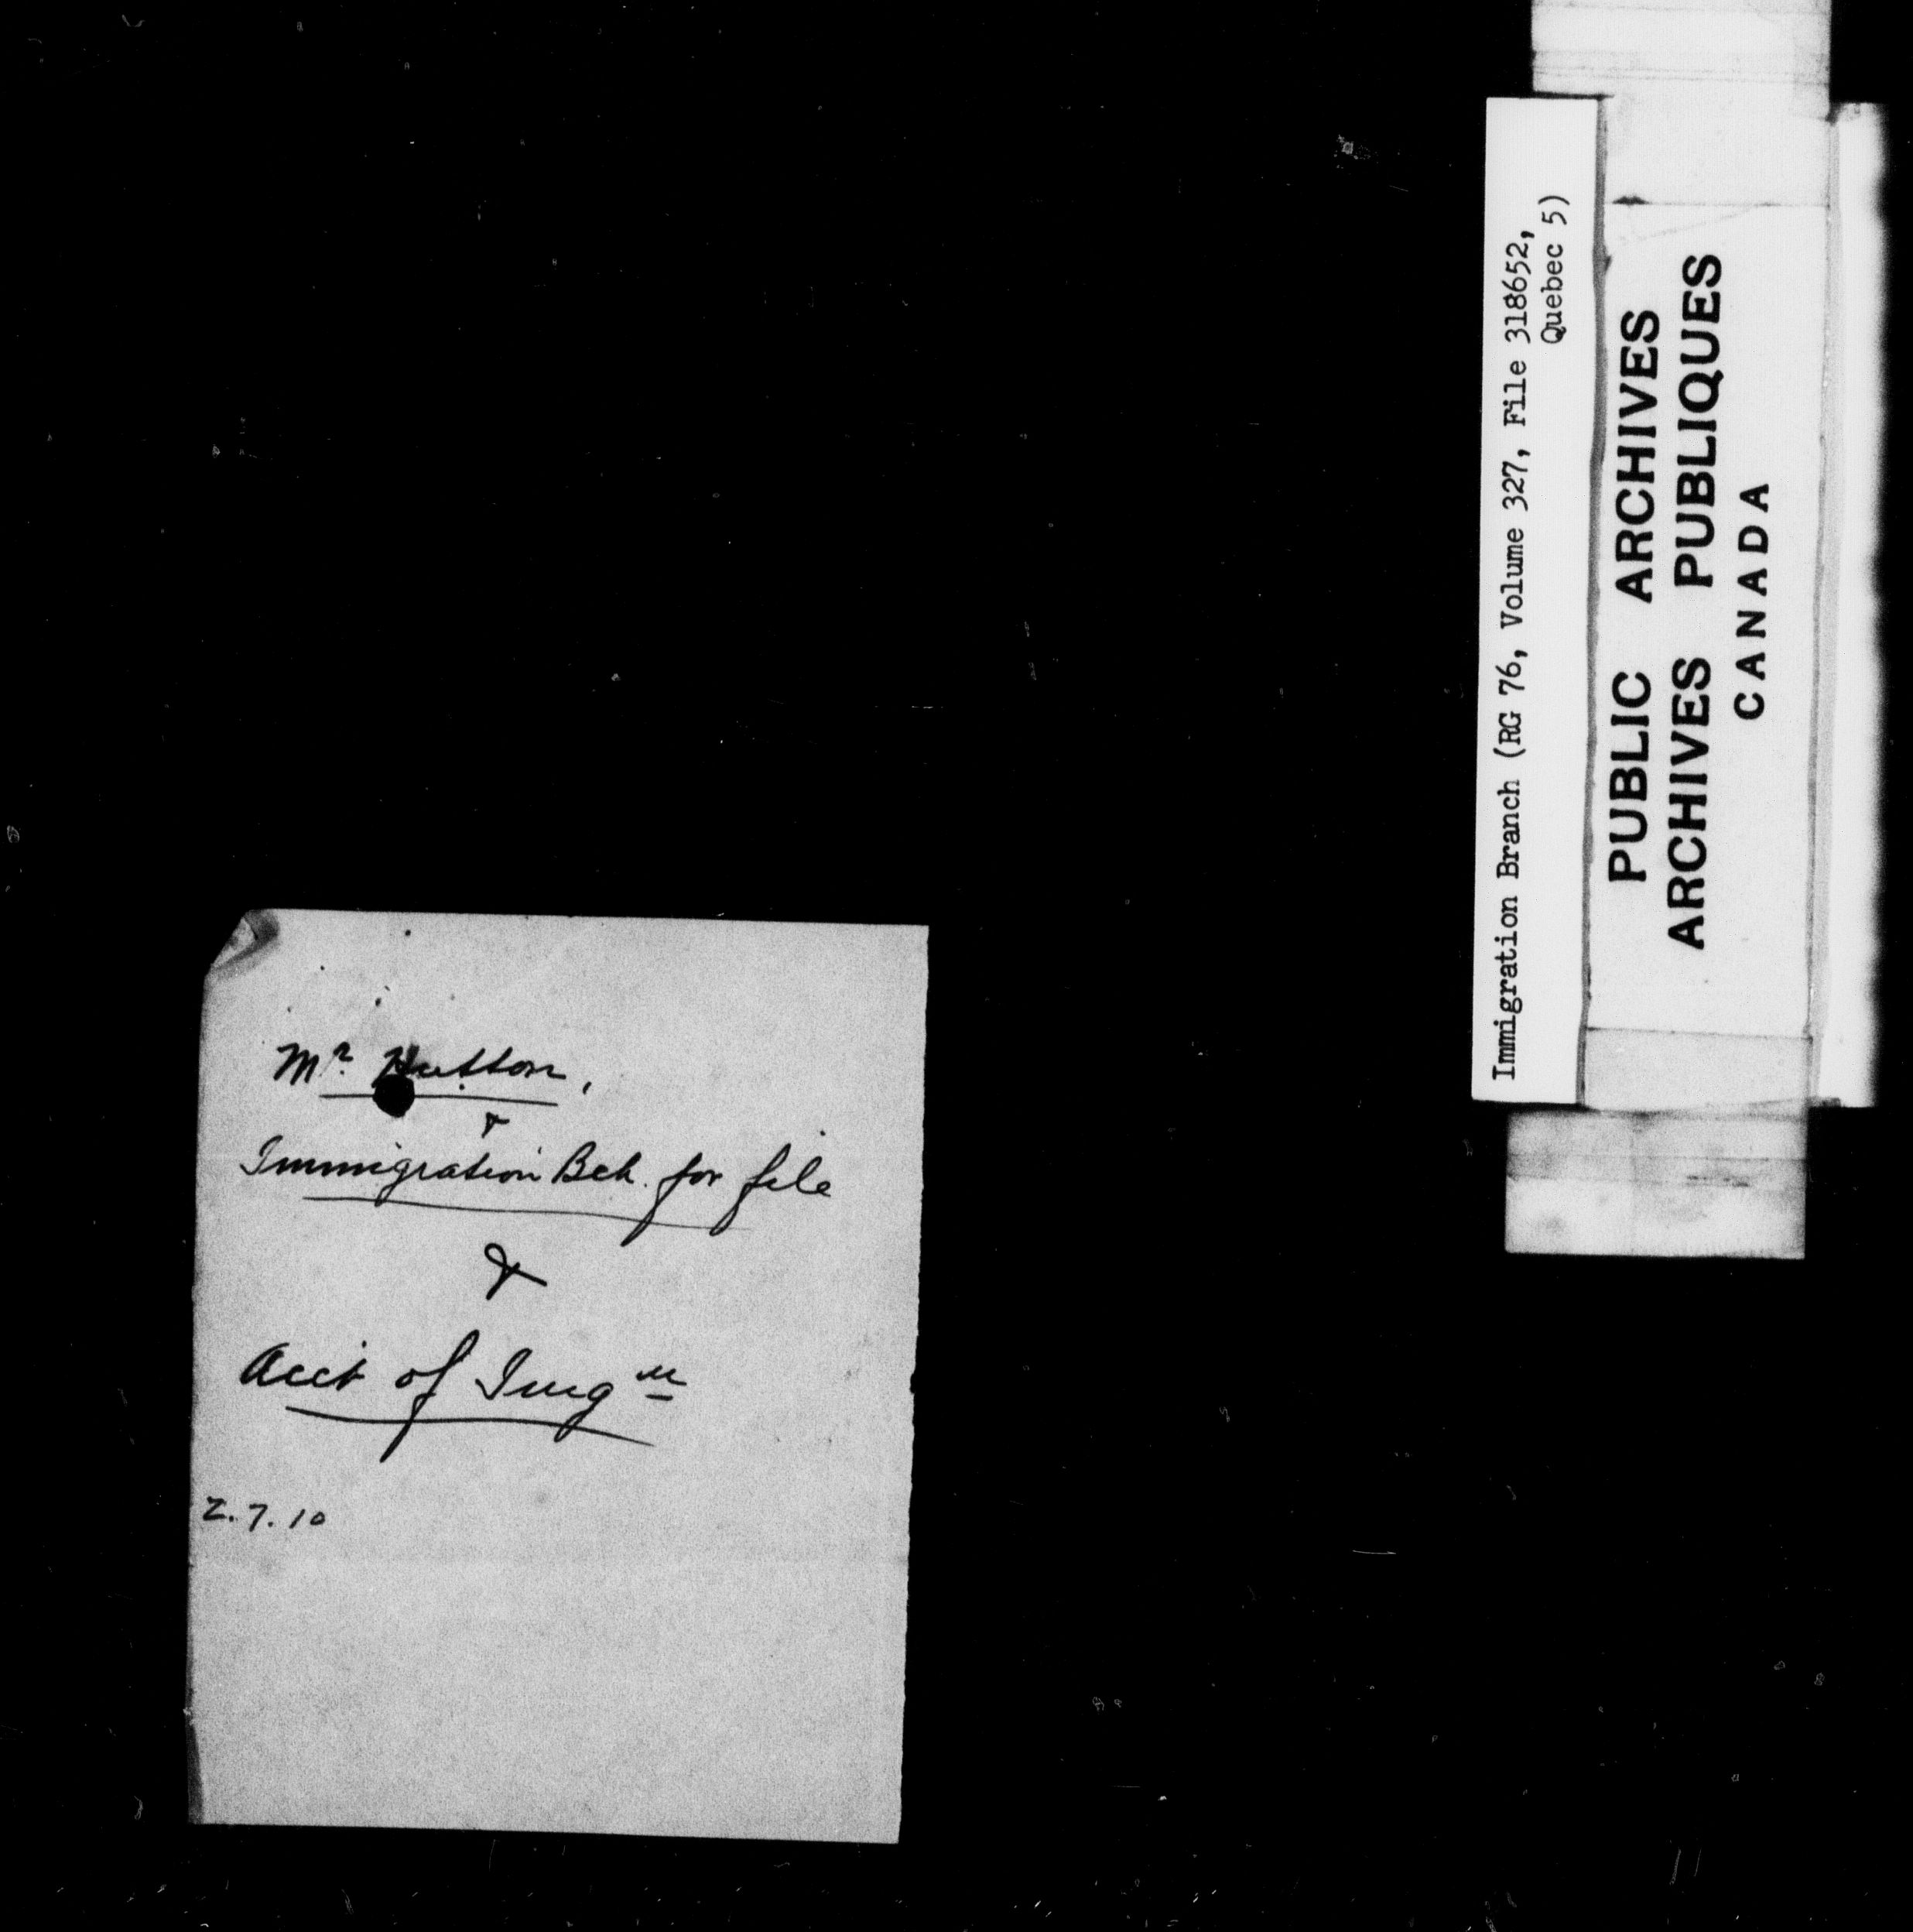 Mr Hutton,
&
Immigration Bch. for file
&
Acct of Imgn
2.7.10
Immigration Branch (RG 76, Volume 327, File 318652,
Quebec 5)
PUBLIC ARCHIVES
ARCHIVES PUBLIQUES
CANADA